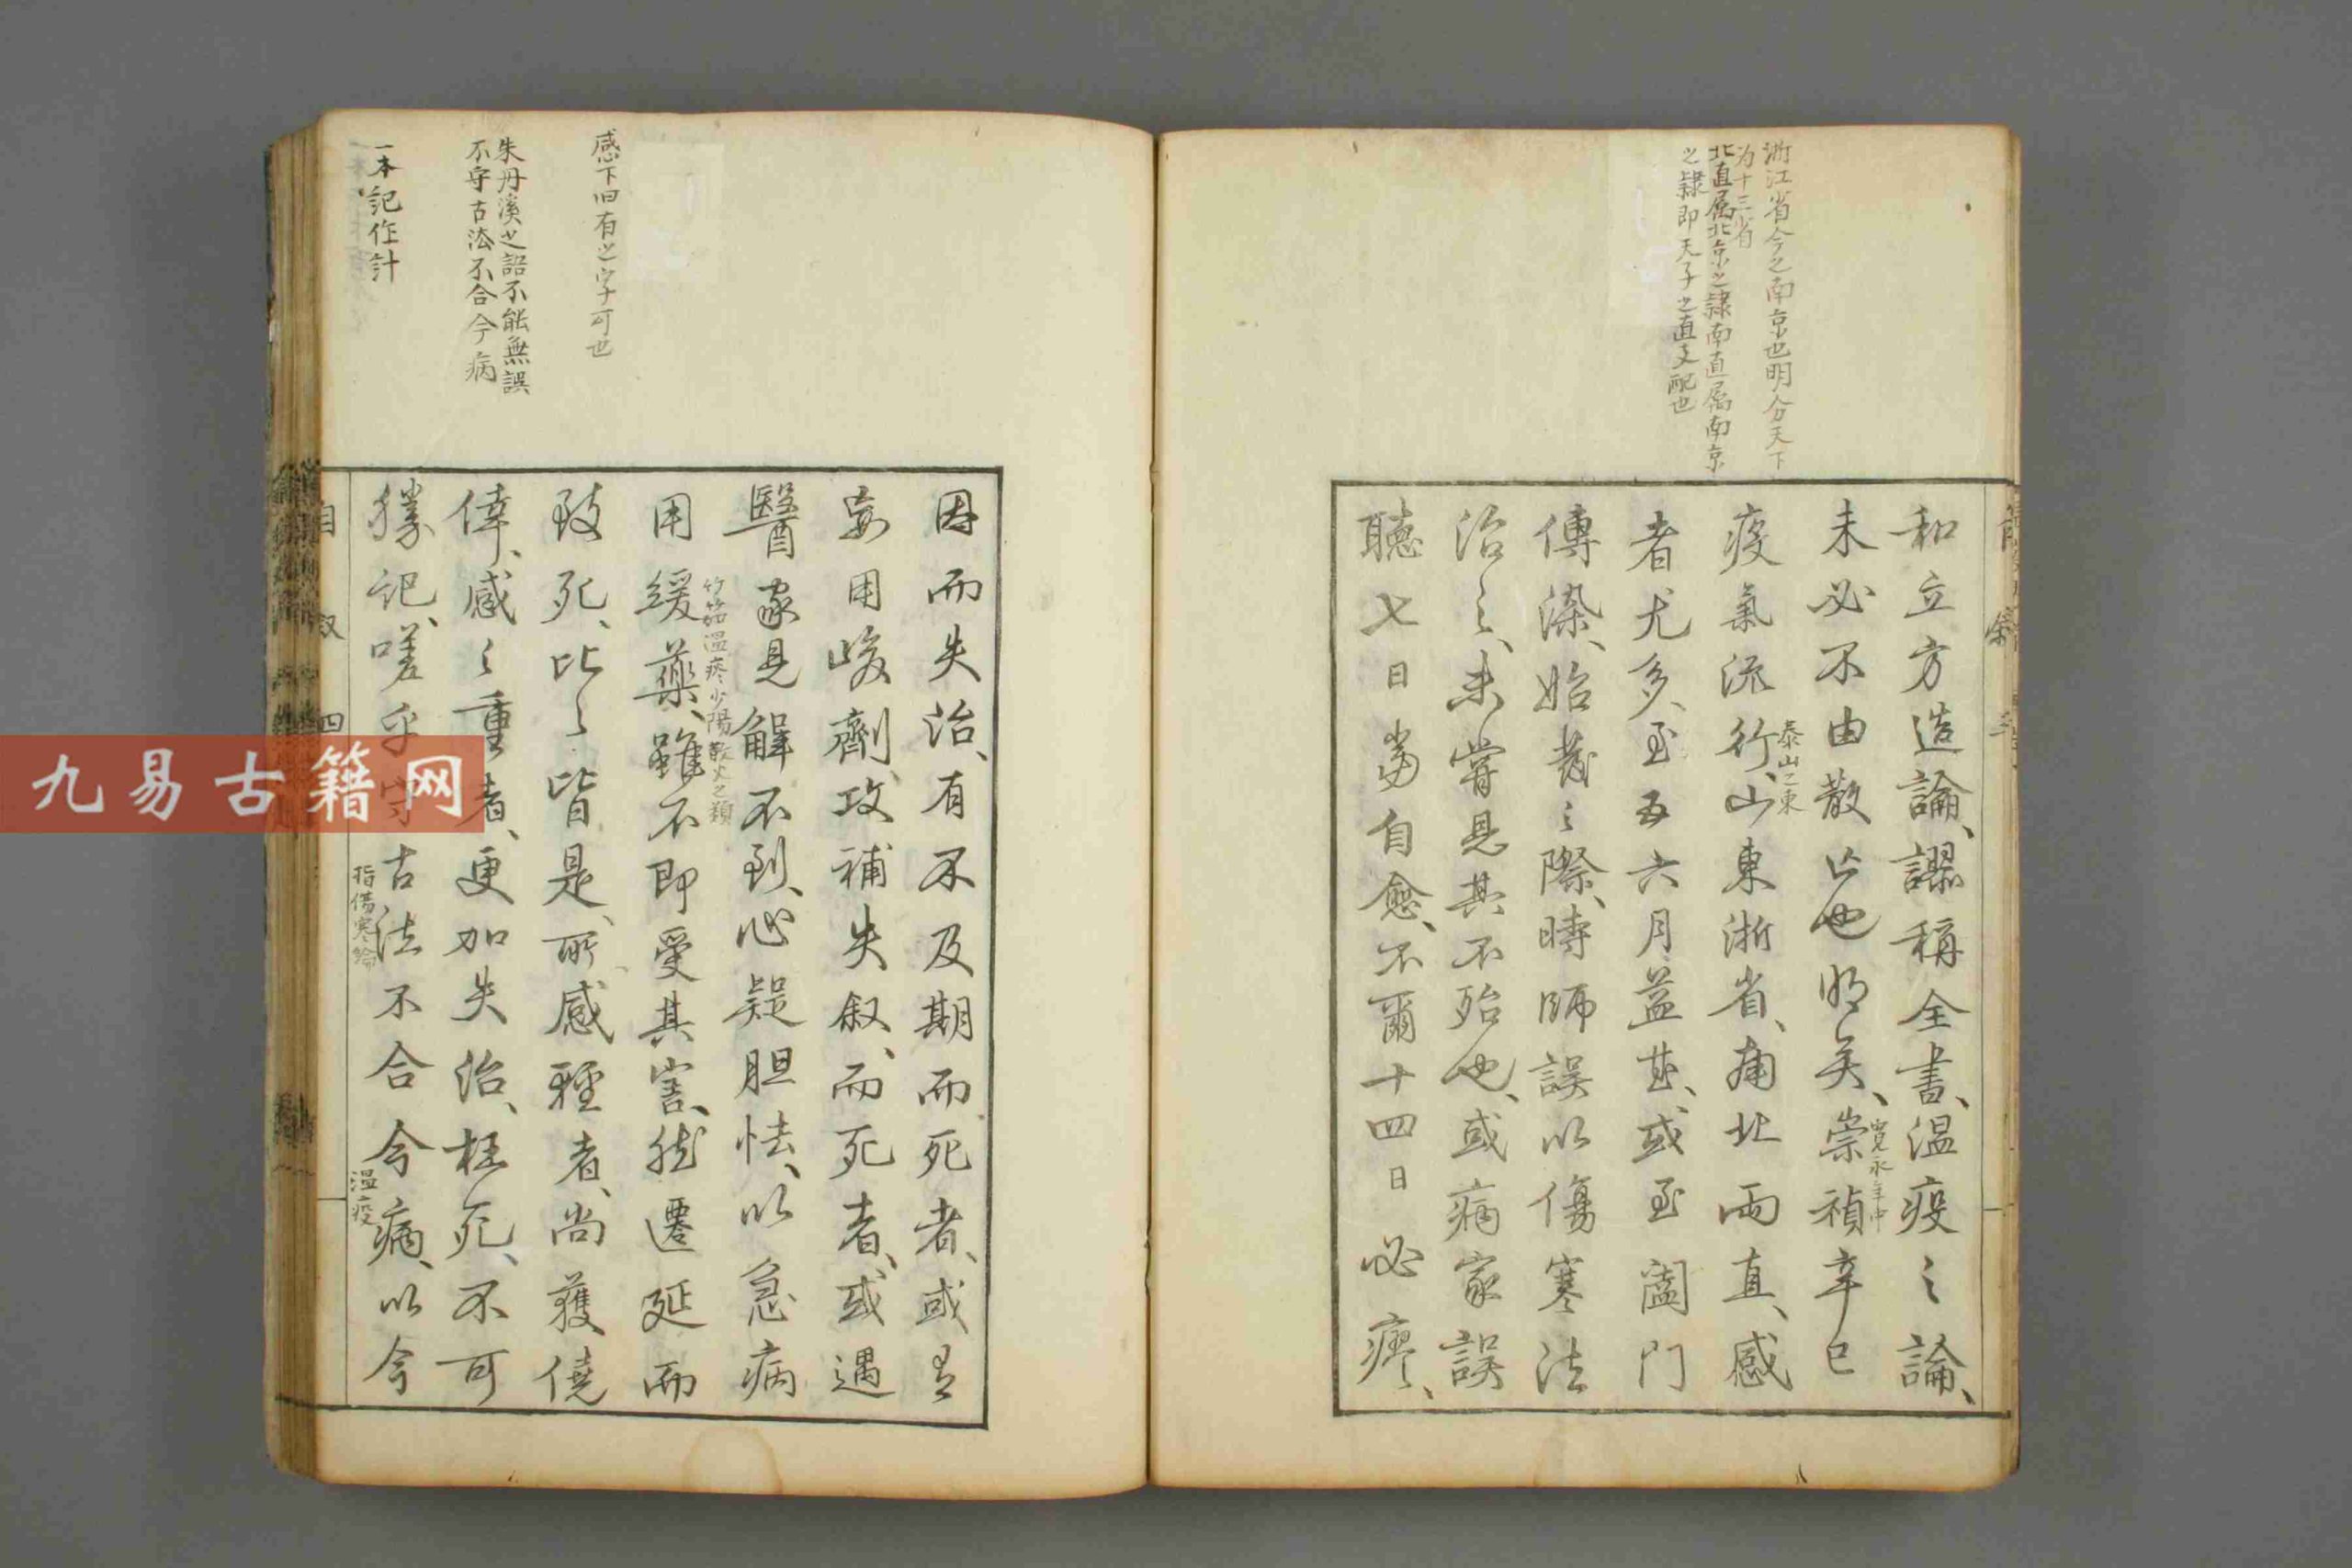 浙江省今之南京也明分天下
为十三省
北直属北京之隷南直属南京
之隷即天子之直支配也
和立方造論、謬稱全書、温疫之論、
未必不由散亡也明矣、崇禎辛巳
寛永年中
疫氣流行、山東浙省、南北両直、感
泰山之東
者尤多、至五六月益甚、或至闔門
傳染、始發之際、時師誤以傷寒法
治之、未嘗見其不殆也、或病家誤
聽七日當自愈、不爾十四日必瘳、
感下旧有之字可也
朱丹溪之語不能無誤
不守古法不合今病
一本記作計
因而失治、有不及期而死者、或有
妄用峻劑、攻補失叙、而死者、或遇
醫家見解不到、心疑胆怯、以急病
用緩藥、雖不即受其害、然遷延而
竹茹温疼少陽散火之類
致死、比之皆是、所感輕者、尚獲僥
倖、感之重者、更加失治、枉死、不可
勝記、嗟乎守古法不合今病、以今
指傷寒論
温疫
自叙 四
九易古籍网